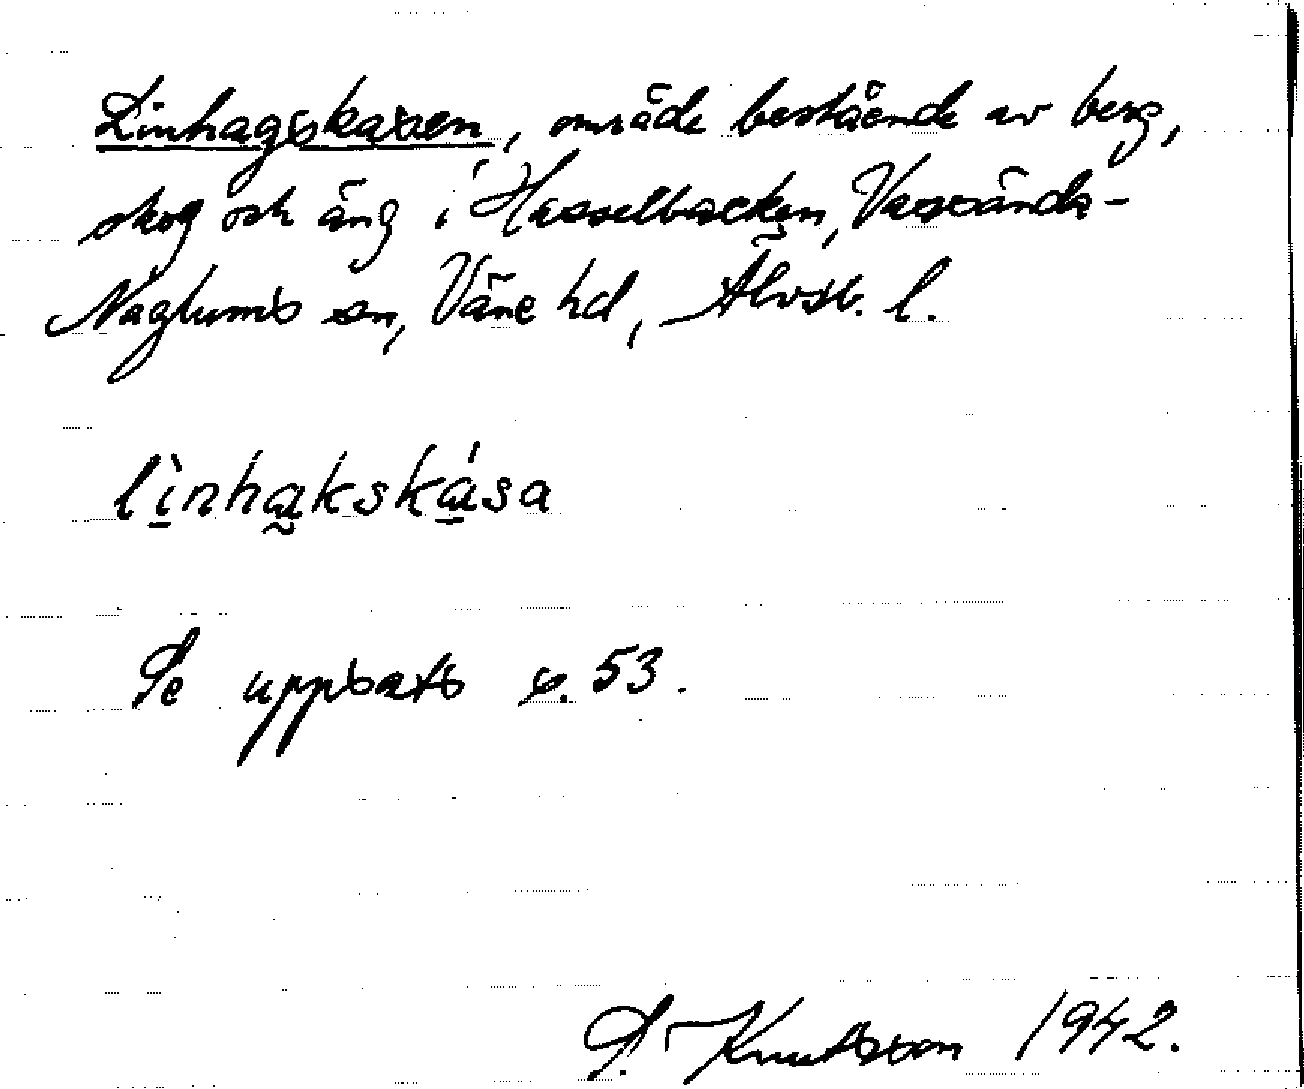 Linhagskasen, område bestående av berg,
skog och äng i Hasselbacken, Vassända-
Naglums sn, Väne hd, Älvsb. l.
lìnhakskása
Se uppsats s. 53.
S. Knutsson 1942.